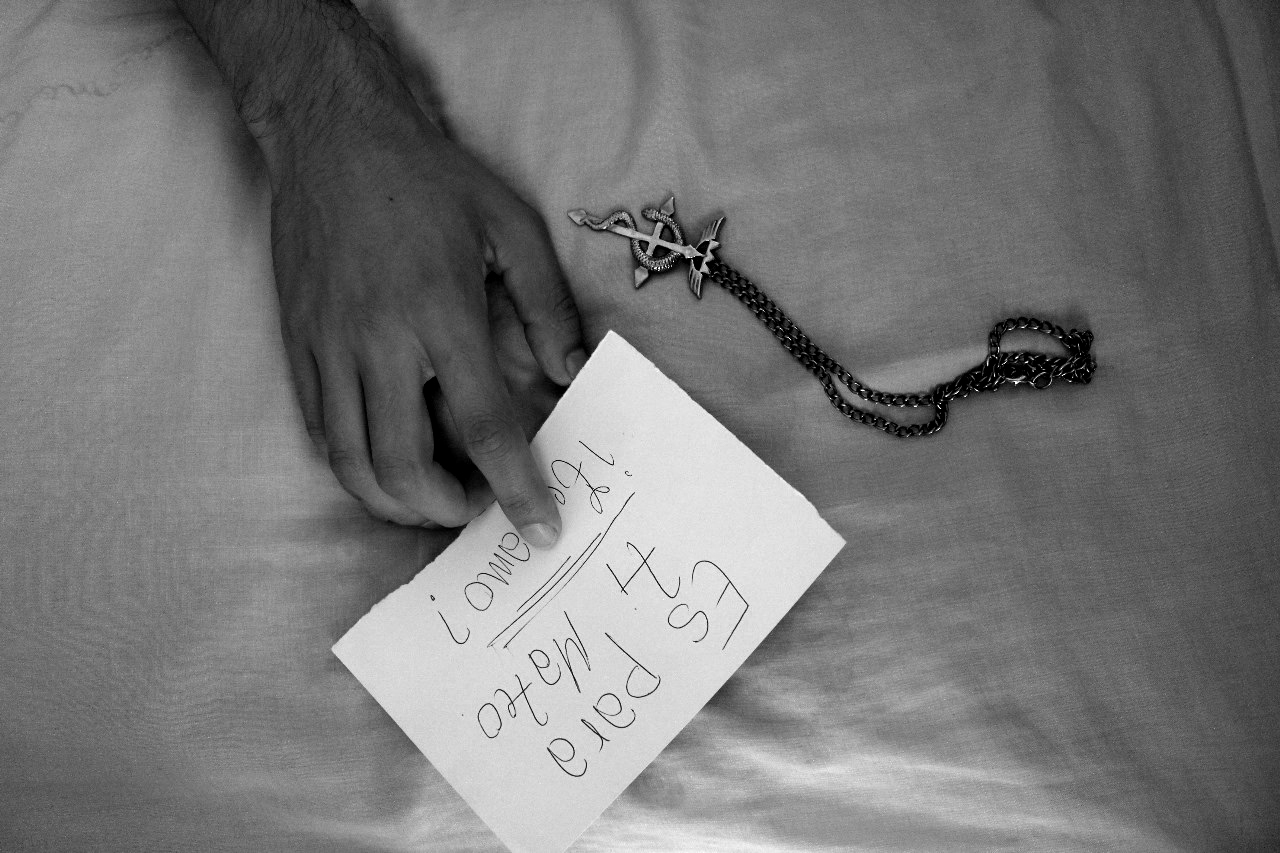 Es para
ti Mateo
¡te amo!